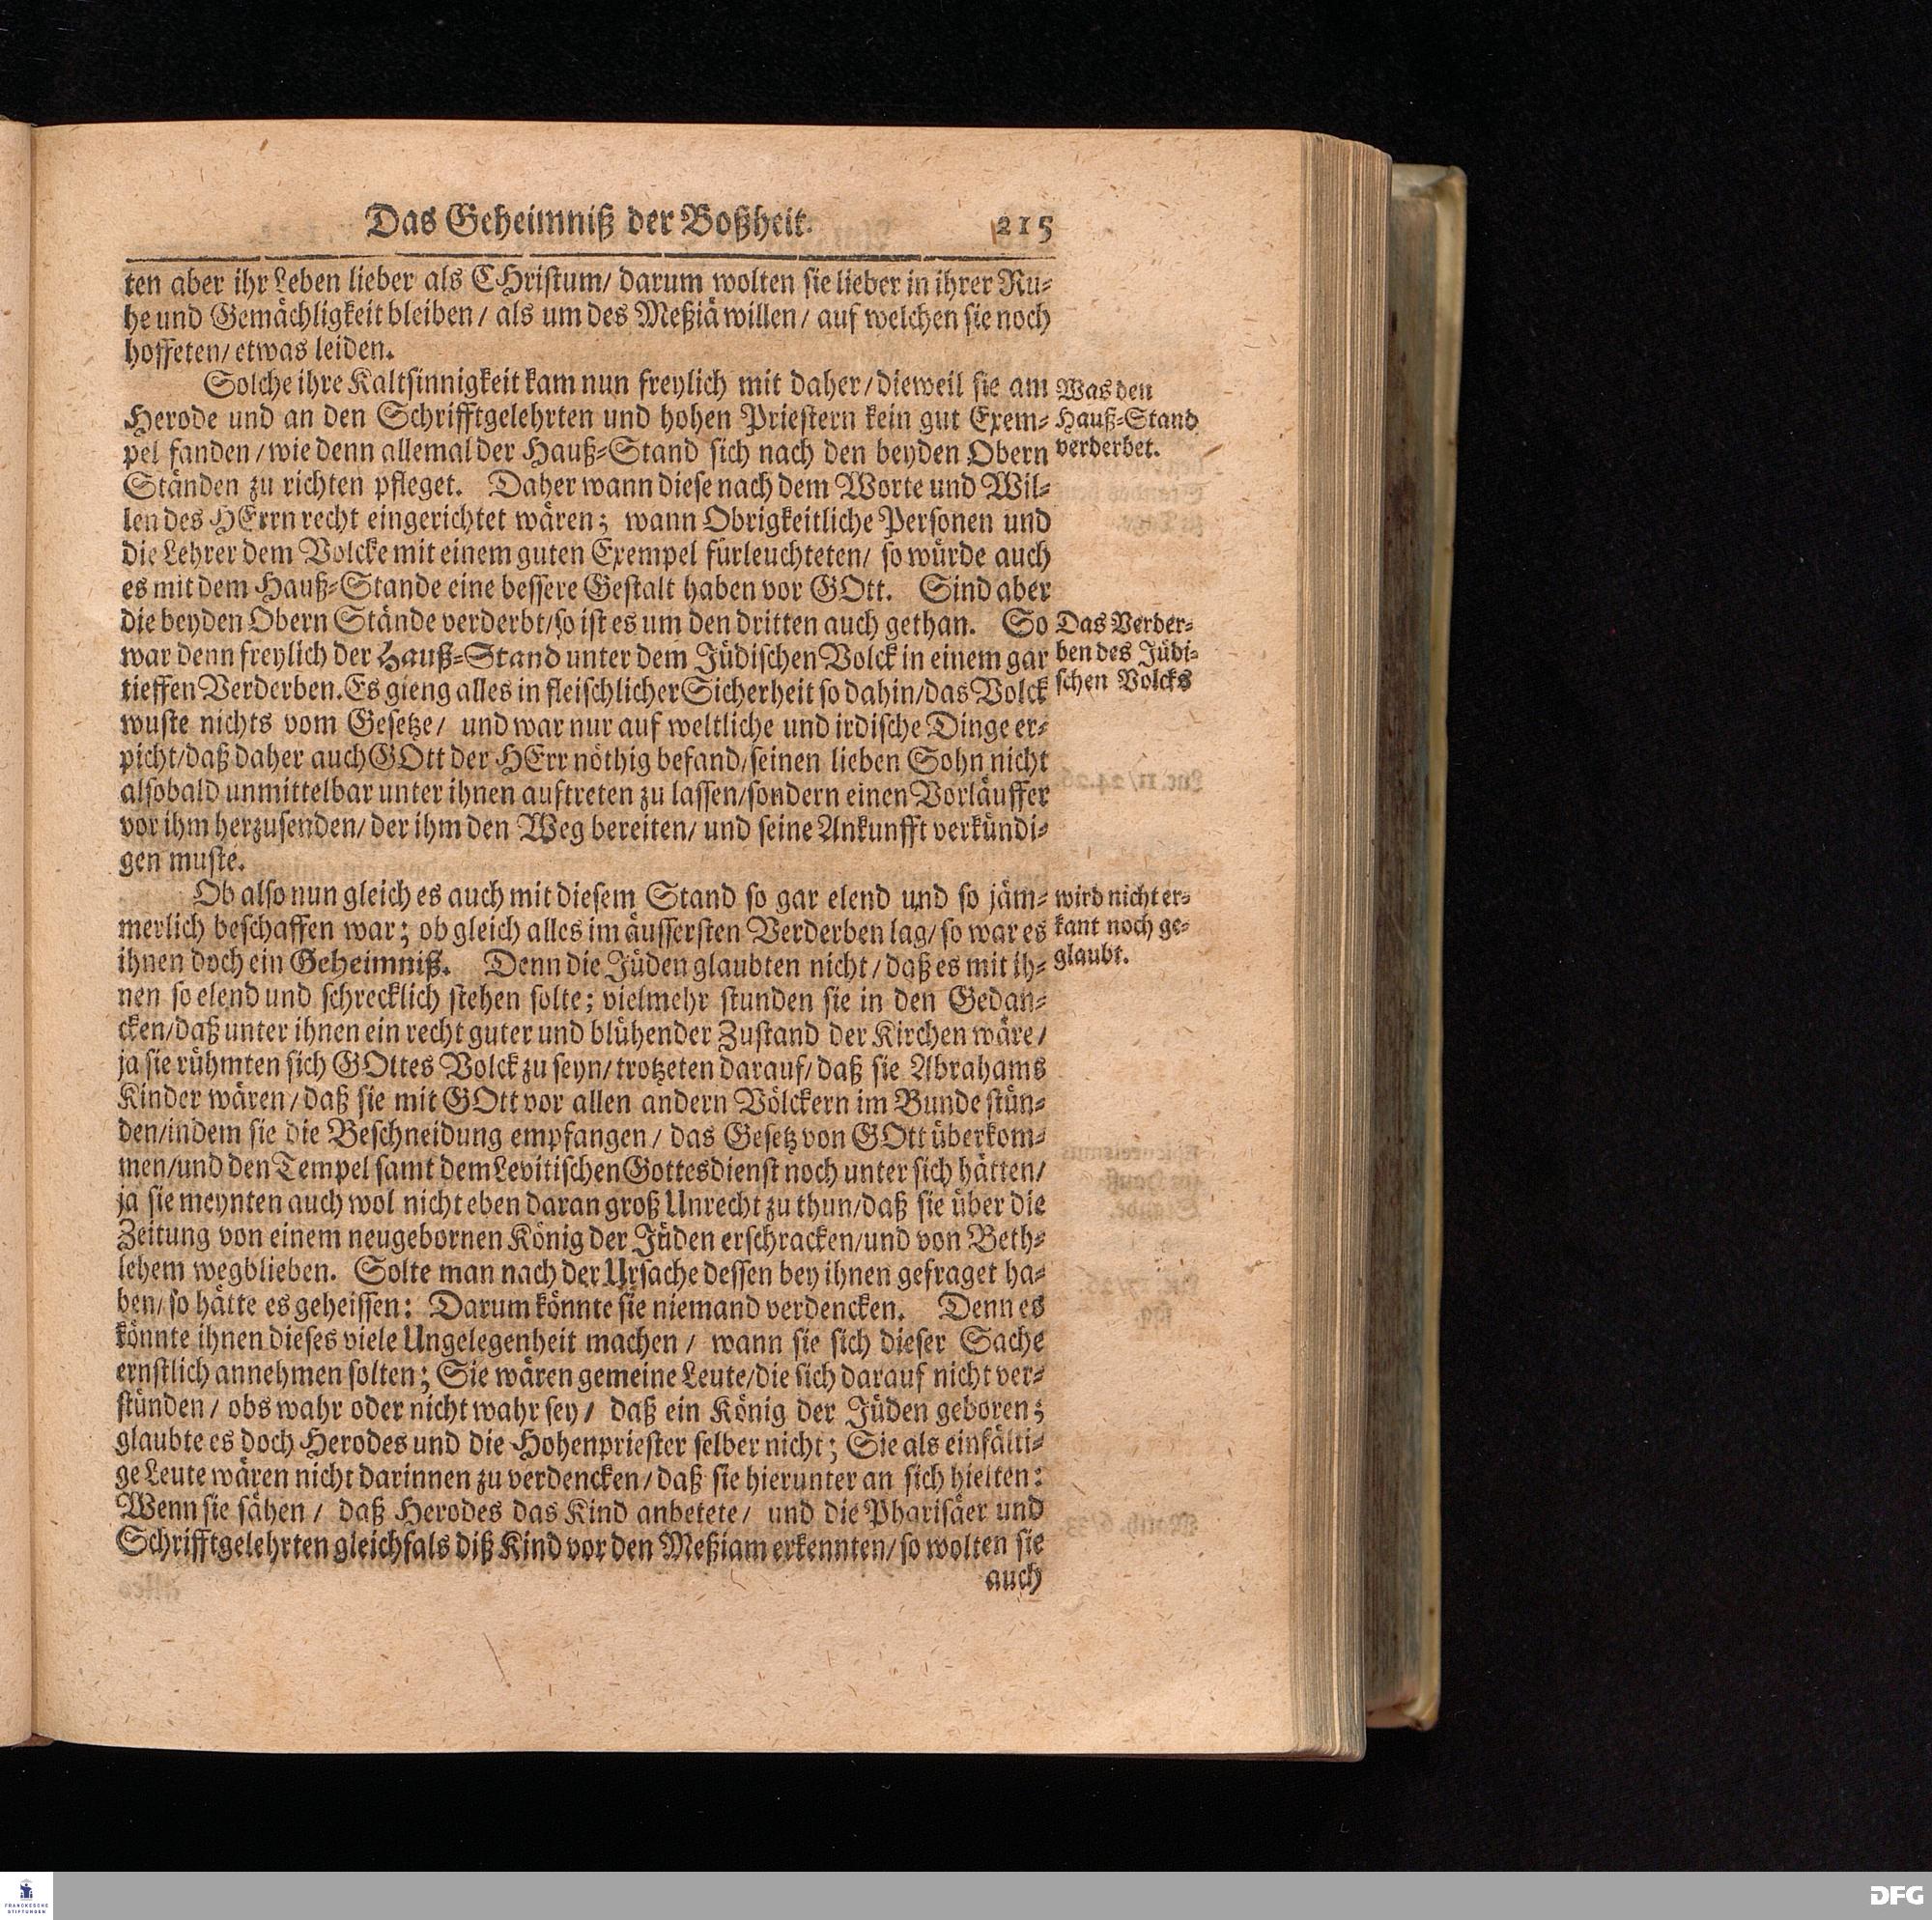 Das Geheimniß der Boßheit. 215
ten aber ihr Leben lieber als CHristum/ darum wolten sie lieber in ihrer Ru-
he und Gemächligkeit bleiben/ als um des Meßiä willen/ auf welchen sie noch
hoffeten/ etwas leiden.
Solche ihre Kaltsinnigkeit kam nun freylich mit daher/ dieweil sie am
Herode und an den Schrifftgelehrten und hohen Priestern kein gut Exem-
pel fanden/ wie denn allemal der Hauß-Stand sich nach den beyden Obern
Ständen zu richten pfleget. Daher wann diese nach dem Worte und Wil-
len des HErrn recht eingerichtet wären; wann Obrigkeitliche Personen und
die Lehrer dem Volcke mit einem guten Exempel fürleuchteten/ so würde auch
es mit dem Hauß-Stande eine bessere Gestalt haben vor GOtt. Sind aber
die beyden Obern Stände verderbt/ so ist es um den dritten auch gethan. So
war denn freylich der Hauß-Stand unter dem Jüdischen Volck in einem gar
tieffen Verderben. Es gieng alles in fleischlicher Sicherheit so dahin/ das Volck
wuste nichts vom Gesetze/ und war nur auf weltliche und irdische Dinge er-
picht/ daß daher auch GOtt der HErr nöthig befand/ seinen lieben Sohn nicht
alsobald unmittelbar unter ihnen auftreten zu lassen/ sondern einen Vorläuffer
vor ihm herzusenden/ der ihm den Weg bereiten/ und seine Ankunfft verkündi-
gen muste.
Ob also nun gleich es auch mit diesem Stand so gar elend und so jäm-
merlich beschaffen war; ob gleich alles im äussersten Verderben lag/ so war es
ihnen doch ein Geheimniß. Denn die Jüden glaubten nicht/ daß es mit ih-
nen so elend und schrecklich stehen solte; vielmehr stunden sie in den Gedan-
cken/ daß unter ihnen ein recht guter und blühender Zustand der Kirchen wäre/
ja sie rühmten sich GOttes Volck zu seyn/ trotzeten darauf/ daß sie Abrahams
Kinder wären/ daß sie mit GOtt vor allen andern Völckern im Bunde stün-
den/ indem sie die Beschneidung empfangen/ das Gesetz von GOtt überkom-
men/ und den Tempel samt dem Levitischen Gottesdienst noch unter sich hätten/
ja sie meynten auch wol nicht eben daran groß Unrecht zu thun/ daß sie über die
Zeitung von einem neugebornen König der Jüden erschracken/ und von Beth-
lehem wegblieben. Solte man nach der Ursache dessen bey ihnen gefraget ha-
ben/ so hätte es geheissen: Darum könnte sie niemand verdencken. Denn es
könnte ihnen dieses viele Ungelegenheit machen/ wann sie sich dieser Sache
ernstlich annehmen solten; Sie wären gemeine Leute/ die sich darauf nicht ver-
stünden/ obs wahr oder nicht wahr sey/ daß ein König der Jüden geboren;
glaubte es doch Herodes und die Hohenpriester selber nicht; Sie als einfälti-
ge Leute wären nicht darinnen zu verdencken/ daß sie hierunter an sich hielten:
Wenn sie sähen/ daß Herodes das Kind anbetete/ und die Pharisäer und
Schrifftgelehrten gleichfals diß Kind vor den Meßiam erkennten/ so wolten sie
auch
Was den
Hauß-Stand
verderbet.
Das Verder-
ben des Jüdi-
schen Volcks
wird nicht er-
kant noch ge-
glaubt.
FRANCKESCHE
STIFTUNGEN
DFG